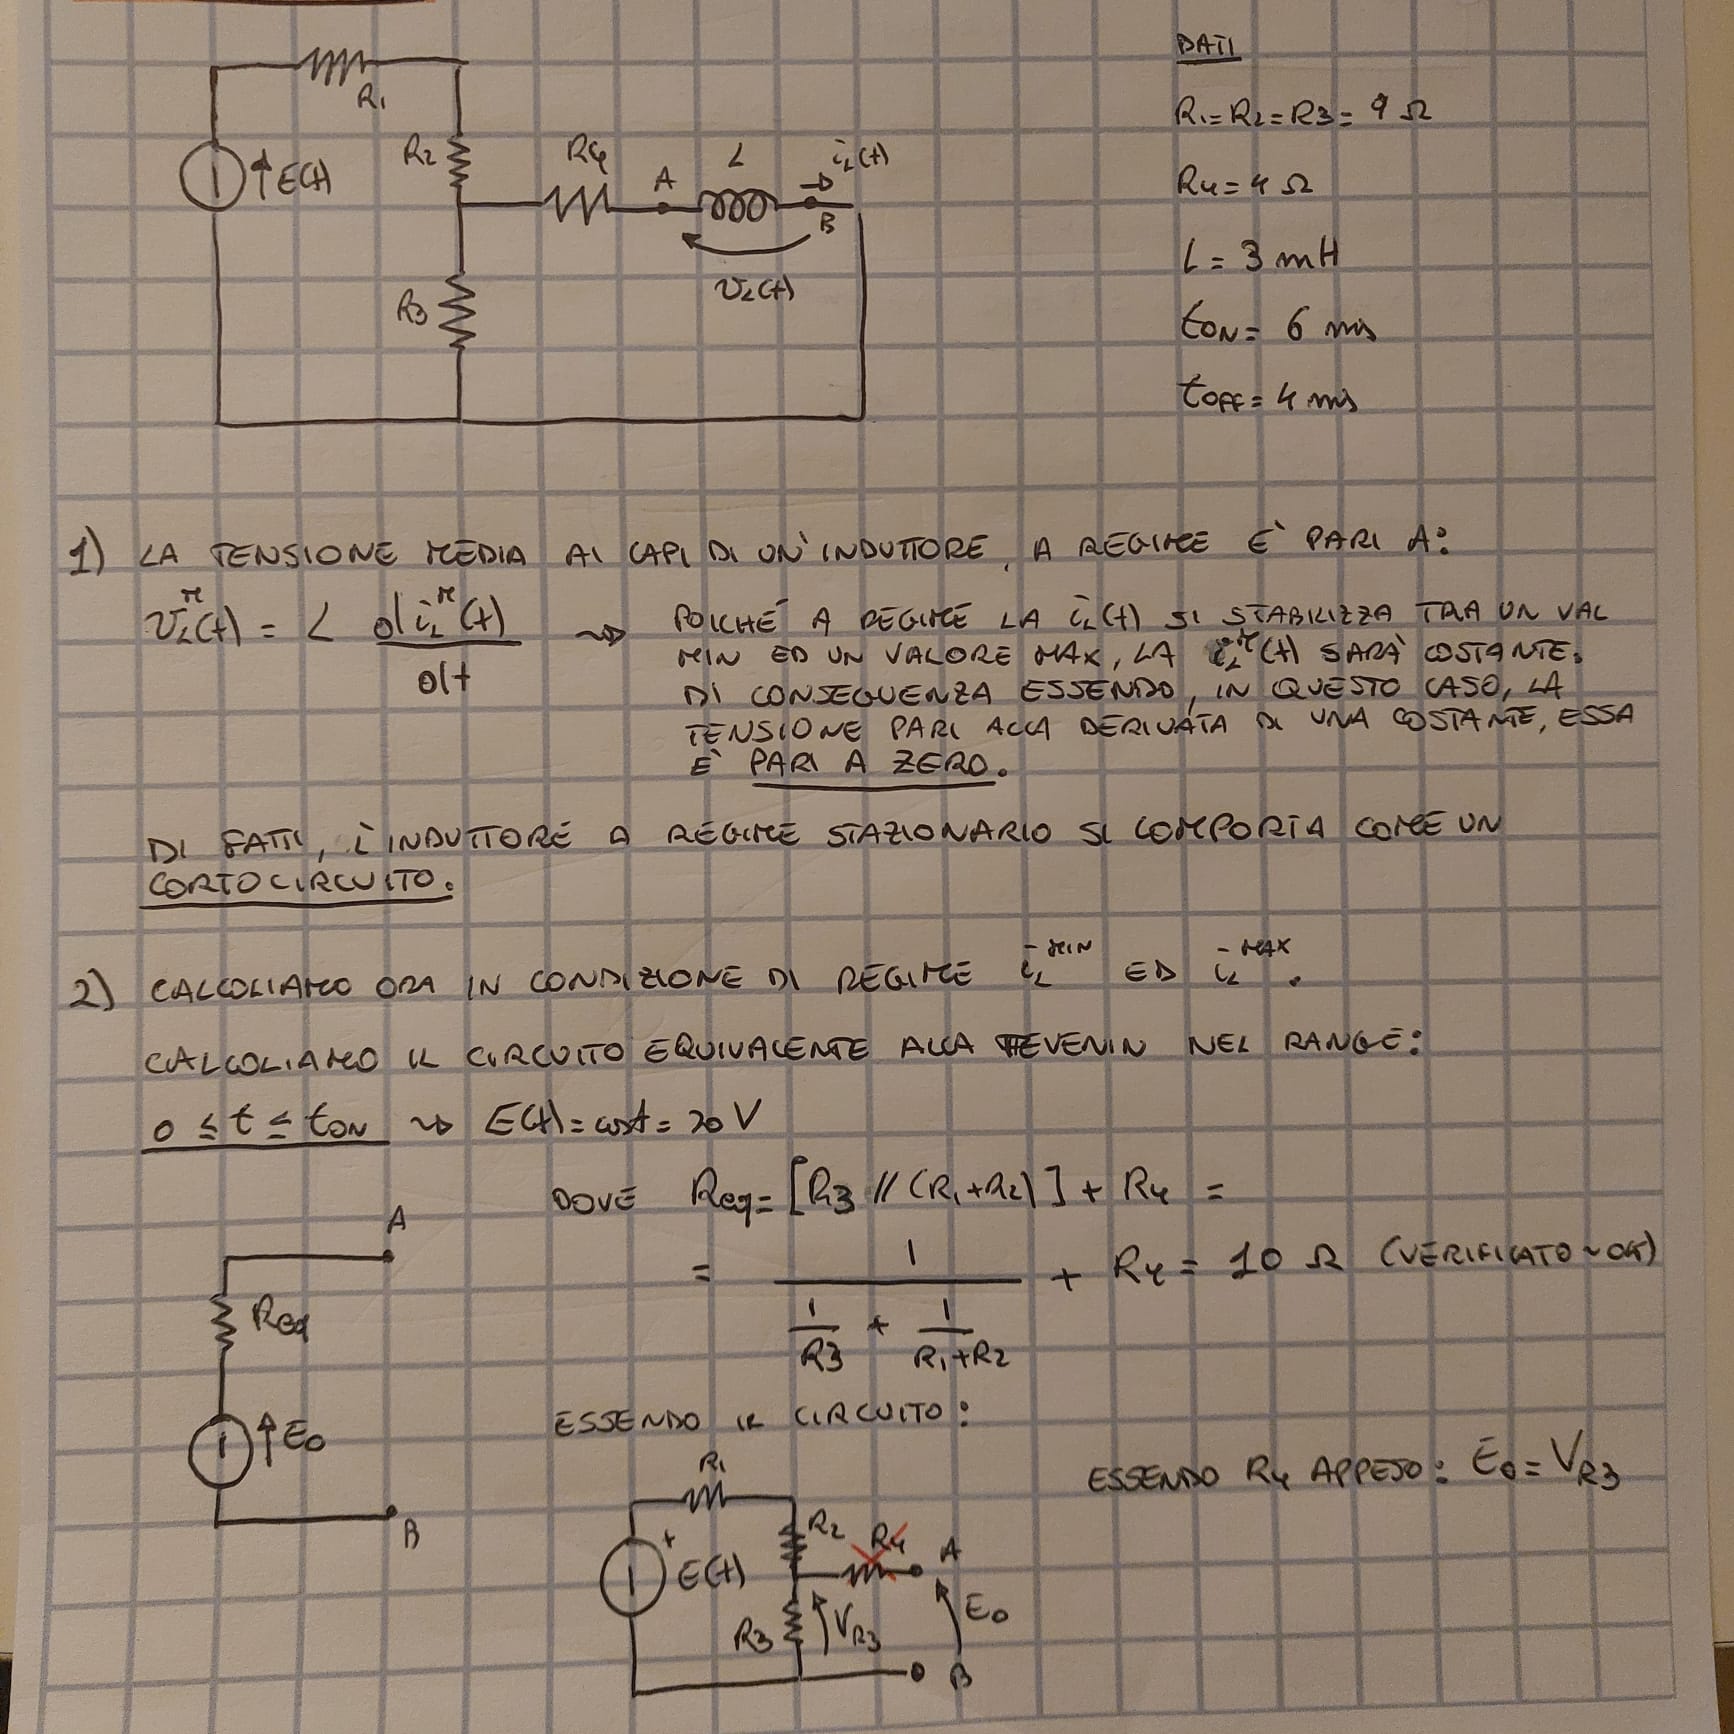 DATI
R1
R1=R2=R3= 9 Ω
R2
R4
A
L
iL(t)
E(t)
B
R4= 4 Ω
vL(t)
L= 3 mH
R3
tON= 6 ms
tOFF= 4 ms
1) LA TENSIONE MEDIA AI CAPI DI UN'INDUTTORE, A REGIME E' PARI A:
vL^M(t) = L d iL^M(t) / dt ⇝ POICHÉ A REGIME LA iL(t) SI STABILIZZA TRA UN VAL
MIN ED UN VALORE MAX, LA iL^M(t) SARÀ COSTANTE.
DI CONSEGUENZA ESSENDO, IN QUESTO CASO, LA
TENSIONE PARI ALLA DERIVATA DI UNA COSTANTE, ESSA
E' PARI A ZERO.
DI FATTI, L'INDUTTORE A REGIME STAZIONARIO SI COMPORTA COME UN
CORTOCIRCUITO.
2) CALCOLIAMO ORA IN CONDIZIONE DI REGIME iL^MIN ED iL^MAX.
CALCOLIAMO IL CIRCUITO EQUIVALENTE ALLA THEVENIN NEL RANGE:
0 ≤ t ≤ tON ⇝ E(t) = cost = 20 V
DOVE Req= [R3 // (R1+R2)] + R4 =
= 1 / (1/R3 + 1/(R1+R2)) + R4 = 10 Ω (VERIFICATO ~ OK)
A
Req
E0
B
ESSENDO IL CIRCUITO:
ESSENDO R4 APPESO: E0 = VR3
R1
R2
R4
A
+
E(t)
E0
R3
VR3
B